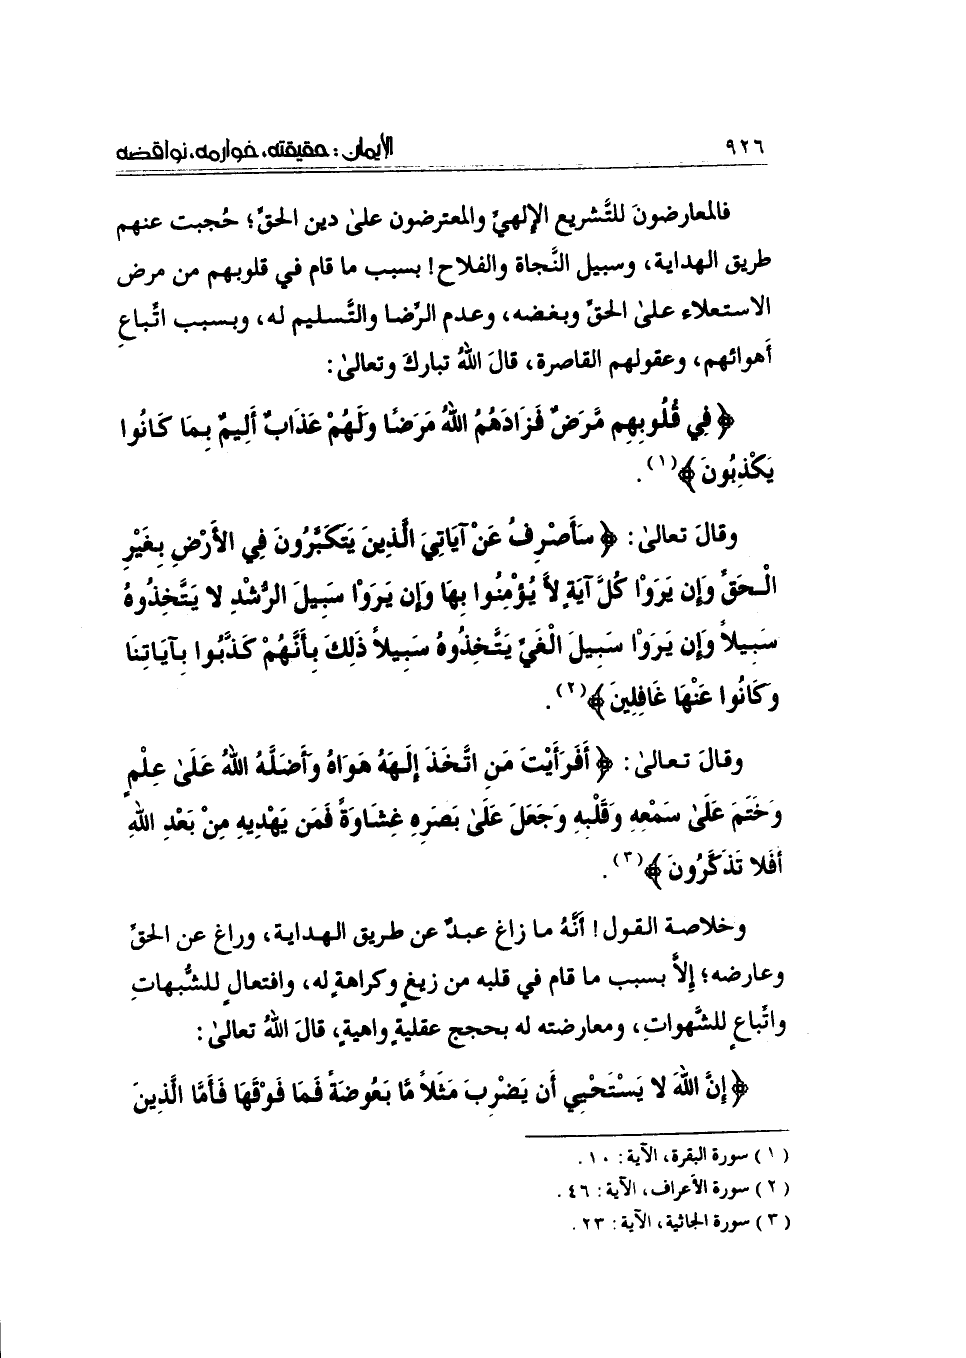 ٩٢٦
الإيمان : حقيقته، خوارمه، نواقضه
فالمعارضونَ للتَّشريع الإلهيِّ والمعترضون علىٰ دين الحقِّ؛ حُجبت عنهم
طريق الهداية، وسبيل النَّجاة والفلاح! بسبب ما قام في قلوبهم من مرض
الاستعلاء علىٰ الحقِّ وبغضه، وعدم الرِّضا والتَّسليم له، وبسبب اتِّباعِ
أهوائهم، وعقولهم القاصرة، قالَ اللهُ تباركَ وتعالىٰ:
﴿ فِي قُلُوبِهِم مَّرَضٌ فَزَادَهُمُ اللهُ مَرَضًا وَلَهُمْ عَذَابٌ أَلِيمٌ بِمَا كَانُوا
يَكْذِبُونَ ﴾(١).
وقالَ تعالىٰ: ﴿ سَأَصْرِفُ عَنْ آيَاتِيَ الَّذِينَ يَتَكَبَّرُونَ فِي الأَرْضِ بِغَيْرِ
الْحَقِّ وَإِن يَرَوْا كُلَّ آيَةٍ لاَّ يُؤْمِنُوا بِهَا وَإِن يَرَوْا سَبِيلَ الرُّشْدِ لا يَتَّخِذُوهُ
سَبِيلاً وَإِن يَرَوْا سَبِيلَ الْغَيِّ يَتَّخِذُوهُ سَبِيلاً ذَلِكَ بِأَنَّهُمْ كَذَّبُوا بِآيَاتِنَا
وَكَانُوا عَنْهَا غَافِلِينَ ﴾(٢).
وقالَ تعالىٰ: ﴿ أَفَرَأَيْتَ مَنِ اتَّخَذَ إِلَهَهُ هَوَاهُ وَأَضَلَّهُ اللهُ عَلَىٰ عِلْمٍ
وَخَتَمَ عَلَىٰ سَمْعِهِ وَقَلْبِهِ وَجَعَلَ عَلَىٰ بَصَرِهِ غِشَاوَةً فَمَن يَهْدِيهِ مِنْ بَعْدِ اللهِ
أَفَلا تَذَكَّرُونَ ﴾(٣).
وخلاصة القول! أنَّهُ ما زاغ عبدٌ عن طريق الهداية، وراغ عن الحقِّ
وعارضه؛ إلاَّ بسبب ما قام في قلبه من زيغٍ وكراهةٍ له، وافتعالٍ للشُّبهاتِ
واتِّباعٍ للشَّهواتِ، ومعارضته له بحججٍ عقليةٍ واهيةٍ، قالَ اللهُ تعالىٰ:
﴿ إِنَّ اللهَ لا يَسْتَحْيِي أَن يَضْرِبَ مَثَلاً مَّا بَعُوضَةً فَمَا فَوْقَهَا فَأَمَّا الَّذِينَ
(١) سورة البقرة، الآية: ١٠.
(٢) سورة الأعراف، الآية: ٤٦.
(٣) سورة الجاثية، الآية: ٢٣.